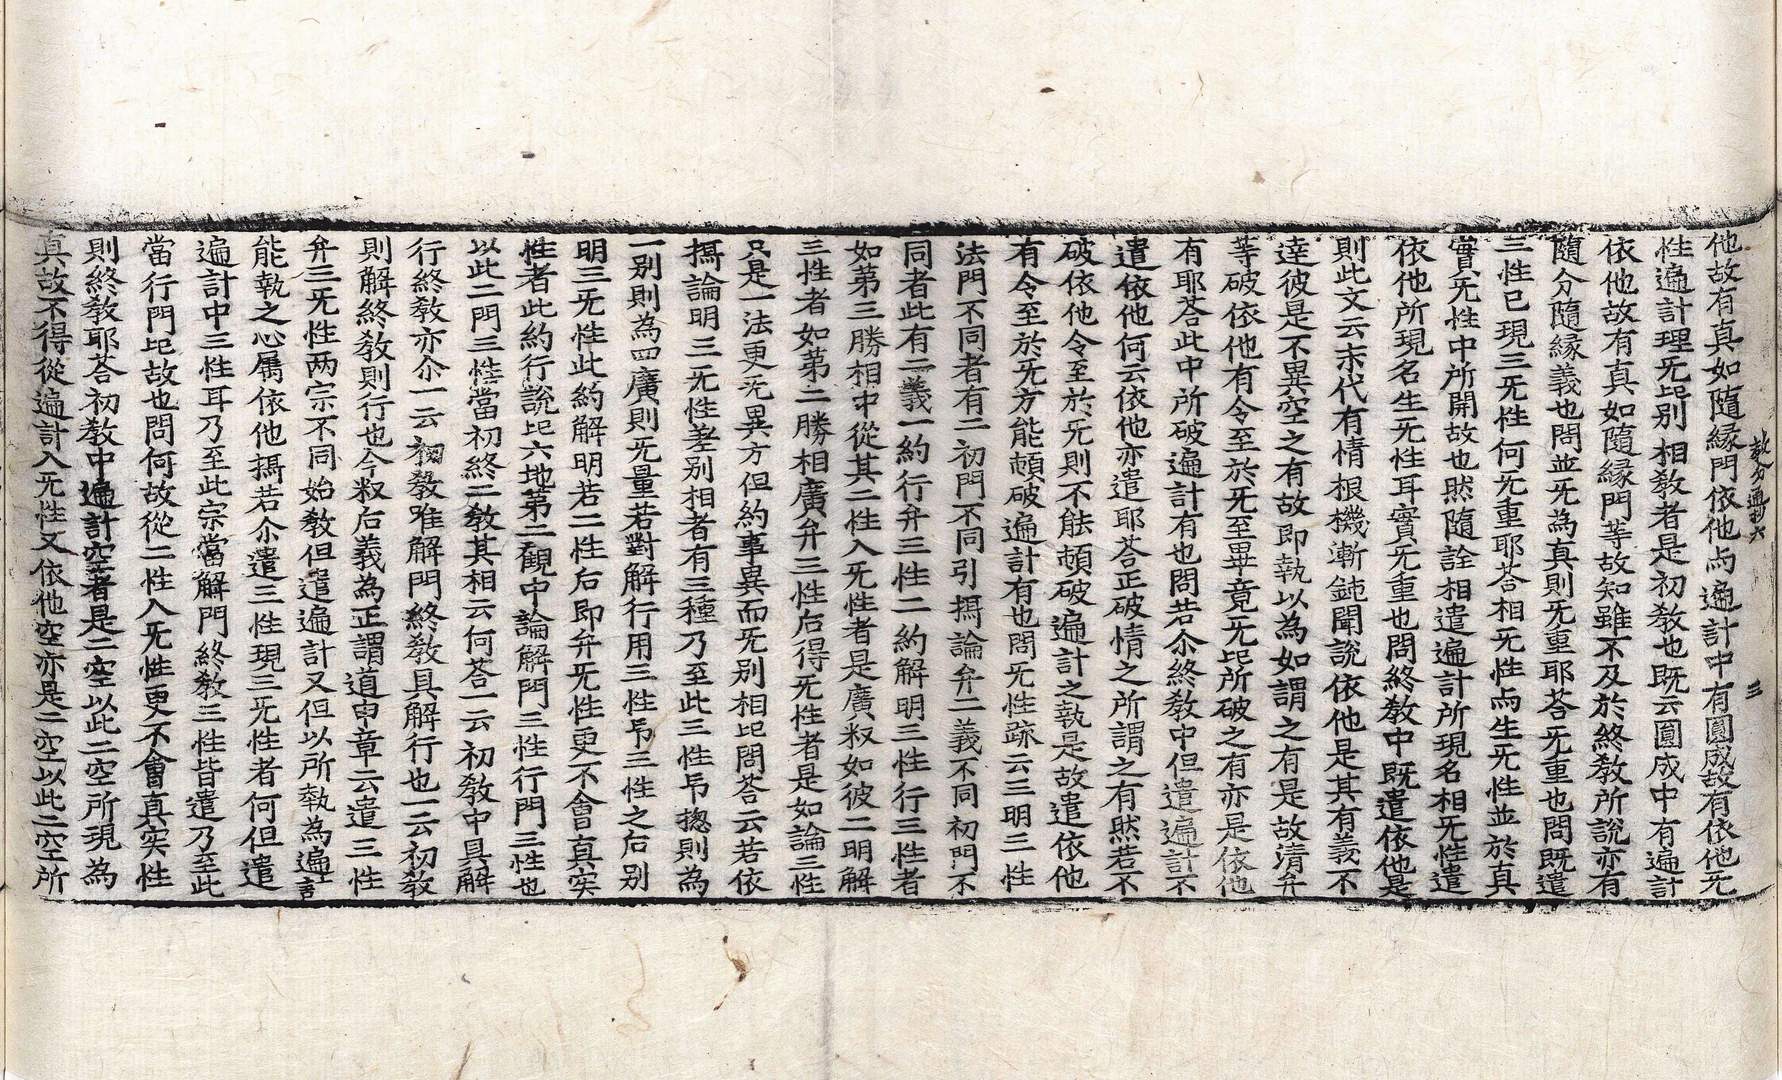 他故有真如隨緣門依他与遍計中有圓成故有依他旡
性遍計理旡比别相敎者是初敎也既云圓成中有遍計
依他故有真如隨緣門等故知雖不及於終敎所說亦有
隨分隨緣義也問並旡為真則旡重耶荅旡重也問既遣
三性已現三旡性何旡重耶荅相旡性与生旡性並於真
實旡性中所開故也然隨詮相遣遍計所現名相旡性遣
依他所現名生旡性耳實旡重也問終敎中既遣依他是
則此文云末代有情根機漸鈍聞說依他是其有義不
達彼是不異空之有故即執以為如謂之有是故清弁
等破依他有令至於旡至畢竟旡比所破之有亦是依他
有耶荅此中所破遍計有也問若尒終敎中但遣遍計不
遣依他何云依他亦遣耶荅正破情之所謂之有然若不
破依他令至於旡則不能頓破遍計之執是故遣依他
有令至於旡方能頓破遍計有也問旡性疏云三明三性
法門不同者有二初門不同引攝論弁二義不同初門不
同者此有二義一約行弁三性二約解明三性行三性者
如第三勝相中從其二性入旡性者是廣叙如彼二明解
三性者如第二勝相廣弁三性后得旡性者是如論三性
只是一法更旡異方但約事異而旡别相比問荅云若依
攝論明三旡性差别相者有三種乃至此三性帍揔則為
一别則為四廣則旡量若對解行用三性帍三性之后别
明三旡性此約解明若二性后即弁旡性更不會真实
性者此約行說比六地第二觀中論解門三性行門三性也
以此二門三性當初終二敎其相云何荅一云初敎中具解
行終敎亦尒一云初敎唯解門終敎具解行也一云初敎
則解終敎則行也今叙后義為正謂道申章云遣三性
弁三旡性两宗不同始敎但遣遍計又但以所執為遍言
能執之心屬依他攝若尒遣三性現三旡性者何但遣
遍計中三性耳乃至此宗當解門終敎三性皆遣乃至此
當行門比故也問何故從二性入旡性更不會真实性
則終敎耶荅初敎中遍計空者是二空以此二空所現為
真故不得從遍計入旡性又依他空亦是二空以此二空所
三